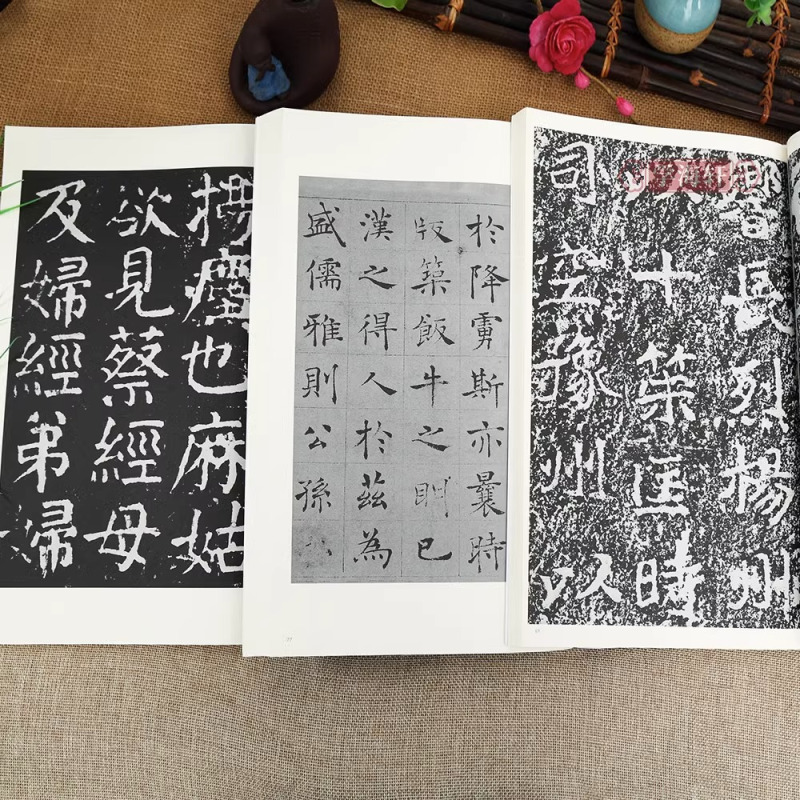 也麻姑
欲見蔡經母
及婦經弟婦
於降虜斯亦曩時
版築飯牛之明已
漢之得人於茲為
盛儒雅則公孫
長烈楊州
十策匡時
司空豫州以